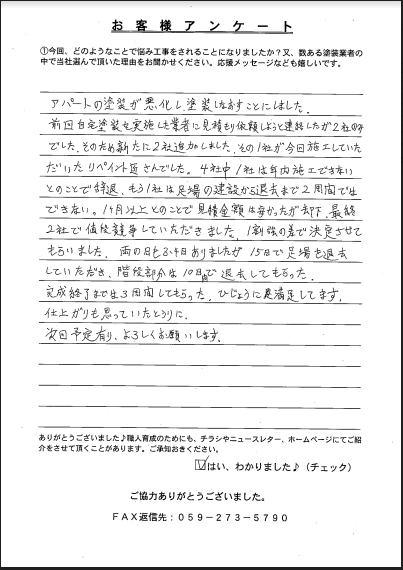 お客様アンケート
①今回、どのようなことで悩み工事をされることになりましたか?又、数ある塗装業者の
中で当社選んで頂いた理由をお聞かせください。応援メッセージなども嬉しいです。
アパートの塗装が悪化し塗装しなおすことにしました。
前回自宅塗装を実施した業者に見積もり依頼しようと連絡したが2社
でした。そのため新たに2社追加しました。その1社が今回施工していた
だいたリペイント匠さんでした。4社中1社は年内施工できない
とのことで辞退、もう1社は足場の建設から退去まで2週間で
できない。1ヶ月以上とのことで見積金額は安かったが却下。最終
2社で値段競争していただきました。1割強の差で決定させて
もらいました。雨の日も3、4日ありましたが15日で足場も退去
していただき、階段部分は10日で退去してもらった。
完成終了まで3週間してもらった。ひじょうに満足してます。
仕上がりも思っていたとうりに。
次回予定有り、よろしくお願いします。
ありがとうございました♪職人育成のためにも、チラシやニュースレター、ホームページにてご紹
介をさせて頂くことがあります。ご承知おきください。
はい、わかりました♪(チェック)
ご協力ありがとうございました。
FAX返信先:059-273-5790